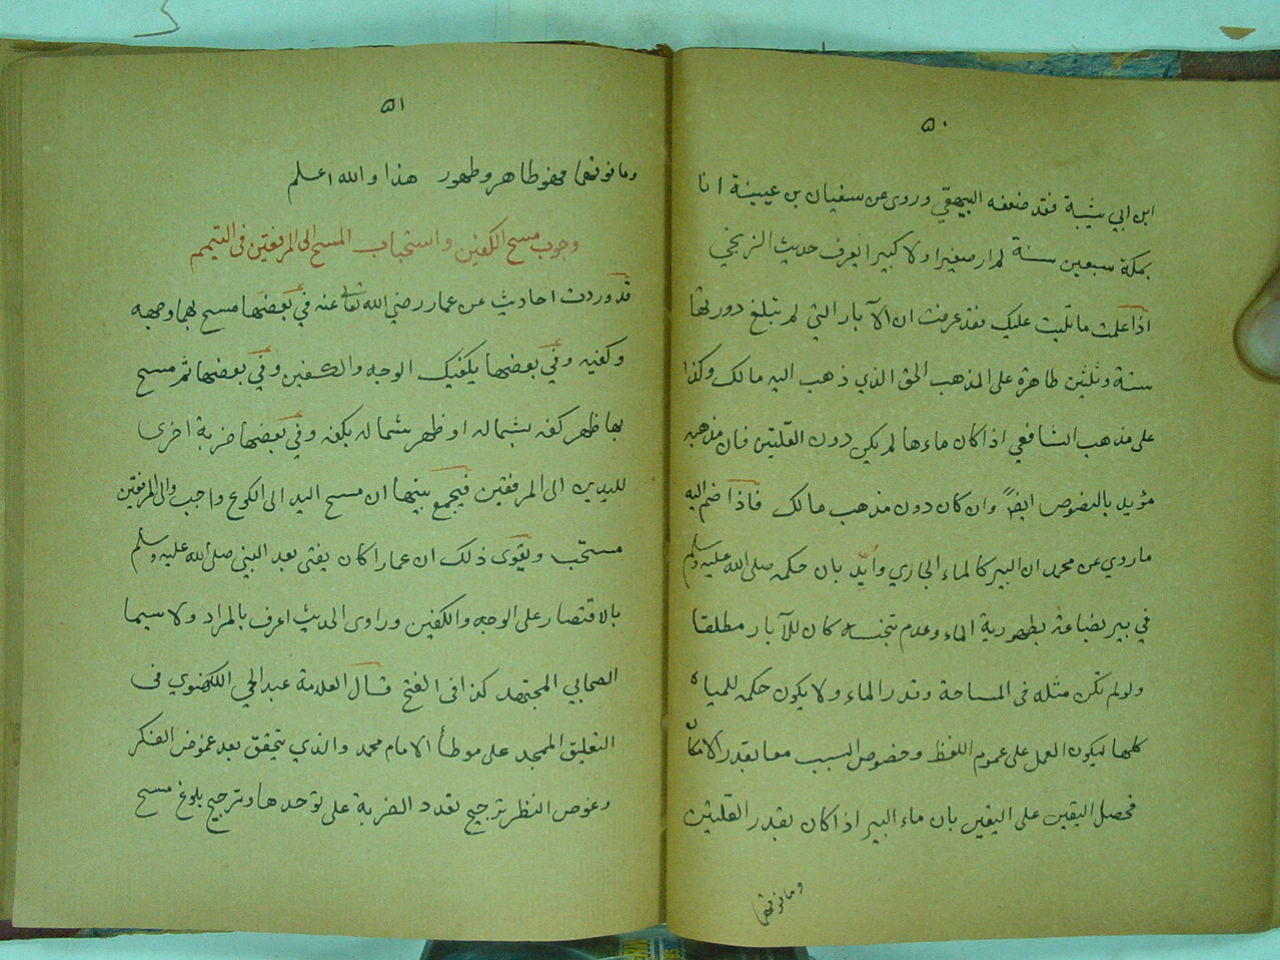 ٥٠
ابن ابي شيبة فقد ضعفه البيهقي وروى عن سفيان بن عيينة انا
بمكة سبعين سنة لم ار صغيرا ولا كبيرا يعرف حديث الزنجي
اذا علمت ما تليت عليك فقد عرفت ان الآبار التي لم تبلغ دورتها
ستة وثلثين طاهرة على المذهب الحق الذي ذهب اليه مالك وكذا
على مذهب الشافعي اذا كان ماءها لم يكن دون القلتين فان مذهبه
مؤيد بالنصوص ايضاً وان كان دون مذهب مالك فاذا ضم اليه
ما روي عن محمد ان البير كالماء الجاري وأيّد بان حكمه صلى الله عليه وسلم
في بير بضاعة بطهورية الماء وعدم تنجسه كان للآبار مطلقا
ولو لم تكن مثله فى المساحة وقدر الماء ولا يكون حكمه للمياه
كلها ليكون العمل على عموم اللفظ وخصوص السبب معا بقدر الامكان
فحصل اليقين على اليقين بان ماء البير اذا كان بقدر القلتين
وما فوقها
٥١
وما فوقها فهو طاهر وطهور هذا والله اعلم
وجوب مسح الكفين واستحباب المسح الى المرفقين فى التيمم
قد وردت احاديث عن عمار رضي الله تعالى عنه في بعضها مسح بهما وجهه
وكفيه وفي بعضها يكفيك الوجه والكفين وفي بعضها ثم مسح
بها ظهر كفه بشماله او ظهر شماله بكفه وفي بعضها ضربة اخرى
لليدين الى المرفقين فيجمع بينها ان مسح اليد الى الكوع واجب والى المرفقين
مستحب ويقوى ذلك ان عمارا كان يفتى بعد النبي صلى الله عليه وسلم
بالاقتصار على الوجه والكفين وراوى الحديث اعرف بالمراد ولا سيما
الصحابي المجتهد كذا فى الفتح قال العلامة عبد الحي اللكهنوي فى
التعليق الممجد على موطأ الامام محمد والذي يتحقق بعد غموض الفكر
وغوص النظر ترجيح تعدد الضربة على توحدها وترجيح بلوغ مسح